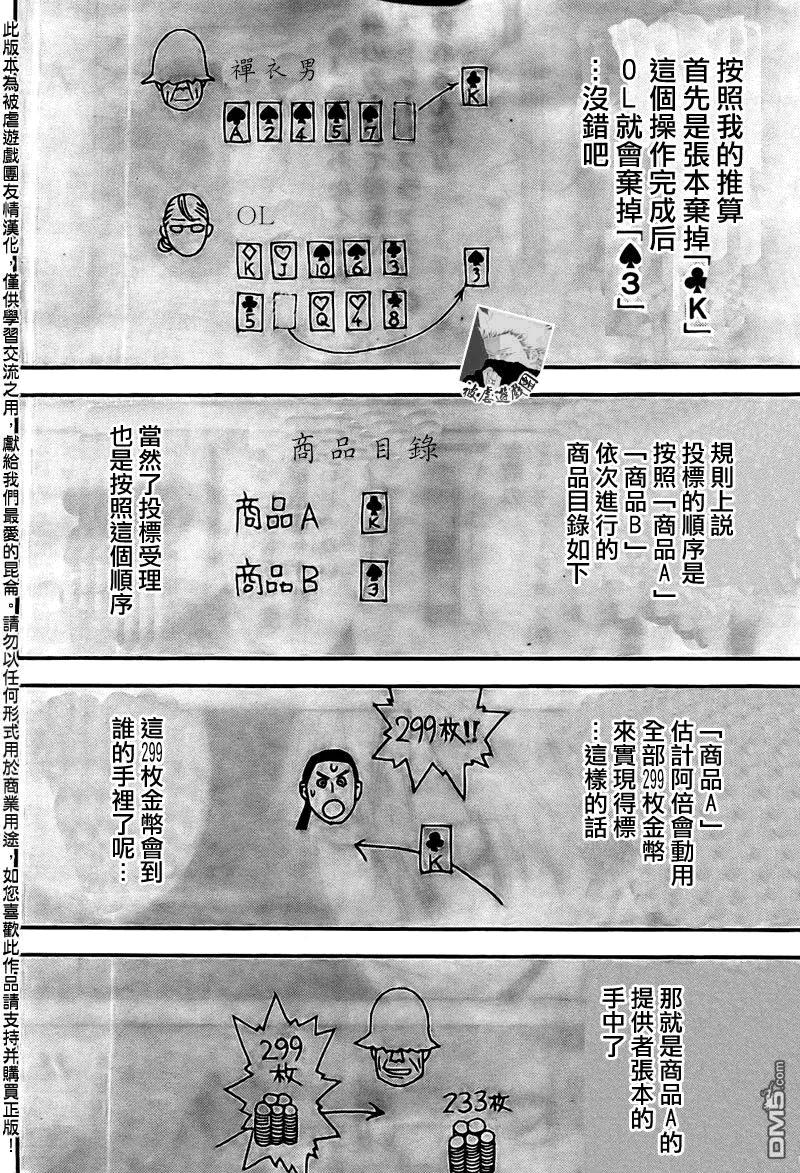 按照我的推算
首先是張本棄掉「♣K」
這個操作完成后
OL就會棄掉「♠3」
…沒錯吧
禪衣男
A
2
4
5
7
K
OL
K
J
10
6
3
5
Q
4
8
3
被虐遊戲團
規則上說
投標的順序是
按照「商品A」
「商品B」
依次進行的
商品目錄如下
商品目錄
商品A
K
商品B
3
當然了投標受理
也是按照這個順序
「商品A」
估計阿倍會動用
全部299枚金幣
來實現得標
…這樣的話
299枚!!
K
這299枚金幣會到
誰的手裡了呢…
那就是商品A的
提供者張本的
手中了
299
枚
233枚
此版本為被虐遊戲團友情漢化，僅供學習交流之用，獻給我們最愛的昆侖。請勿以任何形式用於商業用途，如您喜歡此作品請支持并購買正版！
DM5.com